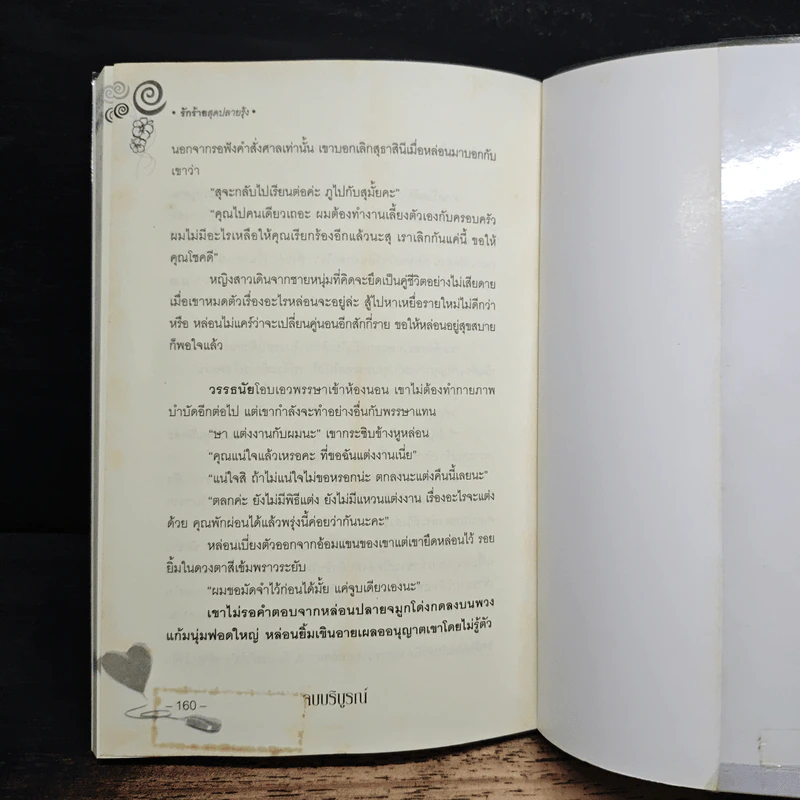 • รักร้ายสุดปลายรุ้ง •
นอกจากรอฟังคำสั่งศาลเท่านั้น เขาบอกเลิกสุธาสินีเมื่อหล่อนมาบอกกับ
เขาว่า
"สุจะกลับไปเรียนต่อค่ะ ภูไปกับสุมั้ยคะ"
"คุณไปคนเดียวเถอะ ผมต้องทำงานเลี้ยงตัวเองกับครอบครัว
ผมไม่มีอะไรเหลือให้คุณเรียกร้องอีกแล้วนะสุ เราเลิกกันแค่นี้ ขอให้
คุณโชคดี"
หญิงสาวเดินจากชายหนุ่มที่คิดจะยึดเป็นคู่ชีวิตอย่างไม่เสียดาย
เมื่อเขาหมดตัวเรื่องอะไรหล่อนจะอยู่ล่ะ สู้ไปหาเหยื่อรายใหม่ไม่ดีกว่า
หรือ หล่อนไม่แคร์ว่าจะเปลี่ยนคู่นอนอีกสักกี่ราย ขอให้หล่อนอยู่สุขสบาย
ก็พอใจแล้ว
วรรธนัยโอบเอวพรรษาเข้าห้องนอน เขาไม่ต้องทำกายภาพ
บำบัดอีกต่อไป แต่เขากำลังจะทำอย่างอื่นกับพรรษาแทน
"ษา แต่งงานกับผมนะ" เขากระซิบข้างหูหล่อน
"คุณแน่ใจแล้วเหรอคะ ที่ขอฉันแต่งงานเนี่ย"
"แน่ใจสิ ถ้าไม่แน่ใจไม่ขอหรอกน่ะ ตกลงนะแต่งคืนนี้เลยนะ"
"ตลกค่ะ ยังไม่มีพิธีแต่ง ยังไม่มีแหวนแต่งงาน เรื่องอะไรจะแต่ง
ด้วย คุณพักผ่อนได้แล้วพรุ่งนี้ค่อยว่ากันนะคะ"
หล่อนเบี่ยงตัวออกจากอ้อมแขนของเขาแต่เขายึดหล่อนไว้ รอย
ยิ้มในดวงตาสีเข้มพราวระยับ
"ผมขอมัดจำไว้ก่อนได้มั้ย แค่จูบเดียวเองนะ"
เขาไม่รอคำตอบจากหล่อนปลายจมูกโด่งกดลงบนพวง
แก้มนุ่มฟอดใหญ่ หล่อนยิ้มเขินอายเผลออนุญาตเขาโดยไม่รู้ตัว
จบบริบูรณ์
– 160 –